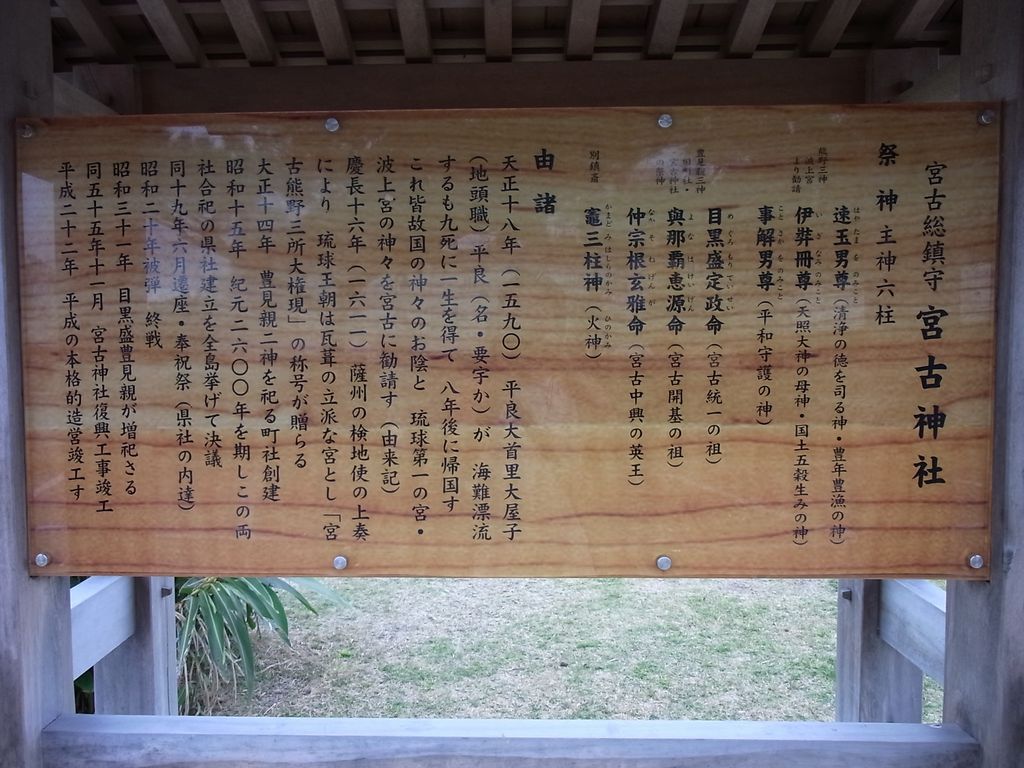 宮古総鎮守 宮古神社
祭神 主神六柱
熊野三神
波上宮
より勧請
速玉男尊（清浄の徳を司る神・豊年豊漁の神）
はやたまをのみこと
伊弉冊尊（天照大神の母神・国土五穀生みの神）
いざなみのみこと
事解男尊（平和守護の神）
ことさかをのみこと
豊見親二神
旧町社・
宮古神社
の祭神
目黒盛定政命（宮古統一の祖）
めぐろもりていせい
與那覇恵源命（宮古開基の祖）
よなはけいげん
仲宗根玄雅命（宮古中興の英王）
なかそねげんが
別鎮斎
竈三柱神（火神）
かまどみはしらのかみ ひのかみ
由諸
天正十八年（一五九〇） 平良大首里大屋子
（地頭職）平良（名・要字か）が 海難漂流
するも九死に一生を得て 八年後に帰国す
これ皆故国の神々のお陰と 琉球第一の宮・
波上宮の神々を宮古に勧請す（由来記）
慶長十六年（一六一一） 薩州の検地使の上奏
により 琉球王朝は瓦葺の立派な宮とし 「宮
古熊野三所大権現」の称号が贈らる
大正十四年 豊見親二神を祀る町社創建
昭和十五年 紀元二六〇〇年を期しこの両
社合祀の県社建立を全島挙げて決議
同十九年六月遷座・奉祝祭（県社の内達）
昭和二十年被弾 終戦
昭和三十一年 目黒盛豊見親が増祀さる
同五十五年十一月 宮古神社復興工事竣工
平成二十二年 平成の本格的造営竣工す